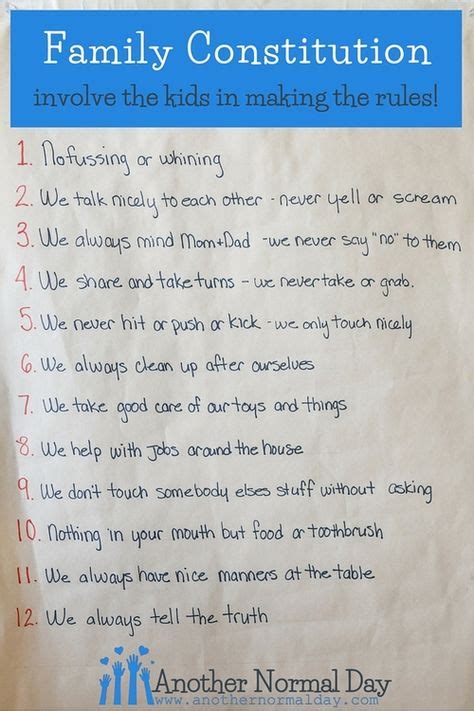 Family Constitution
involve the kids in making the rules!
1. No fussing or whining
2. We talk nicely to each other - never yell or scream
3. We always mind Mom+Dad - we never say "no" to them
4. We share and take turns - we never take or grab.
5. We never hit or push or kick - we only touch nicely
6. We always clean up after ourselves
7. We take good care of our toys and things
8. We help with jobs around the house
9. We don't touch somebody elses stuff without asking
10. Nothing in your mouth but food or toothbrush
11. We always have nice manners at the table
12. We always tell the truth
Another Normal Day
www.anothernormalday.com